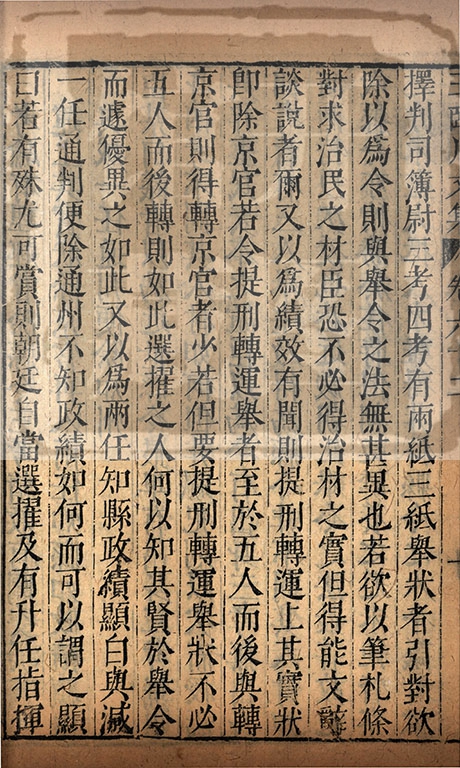 王臨川文集 卷六十二
擇判司簿尉三考四考有兩紙三紙舉狀者引對欲
除以爲令則與舉令之法無甚異也若欲以筆札條
對求治民之材臣恐不必得治材之實但得能文辭
談說者爾又以爲績效有聞則提刑轉運上其實狀
卽除京官若令提刑轉運舉者至於五人而後與轉
京官則得轉京官者少若但要提刑轉運舉狀不必
五人而後轉則如此選擢之人何以知其賢於舉令
而遽優異之如此又以爲兩任知縣政績顯白與減
一任通判便除通州不知政績如何而可以謂之顯
白若有殊尤可賞則朝廷自當選擢及有升任指揮